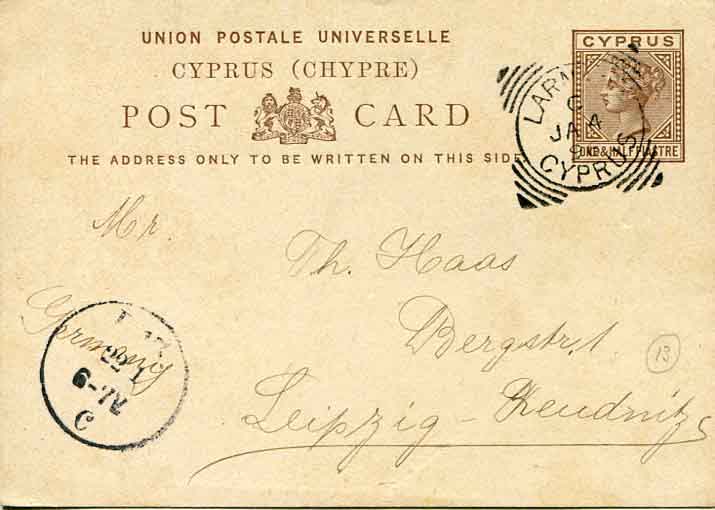 UNION POSTALE UNIVERSELLE
CYPRUS (CHYPRE)
POST CARD
THE ADDRESS ONLY TO BE WRITTEN ON THIS SIDE
CYPRUS
ONE & HALF PIASTRE
C
JA 4
CYPRUS
Mr.
Th. Haas
Germany
Bergstr. 1
13
Leipzig-Reudnitz
22 1
6-7V
C